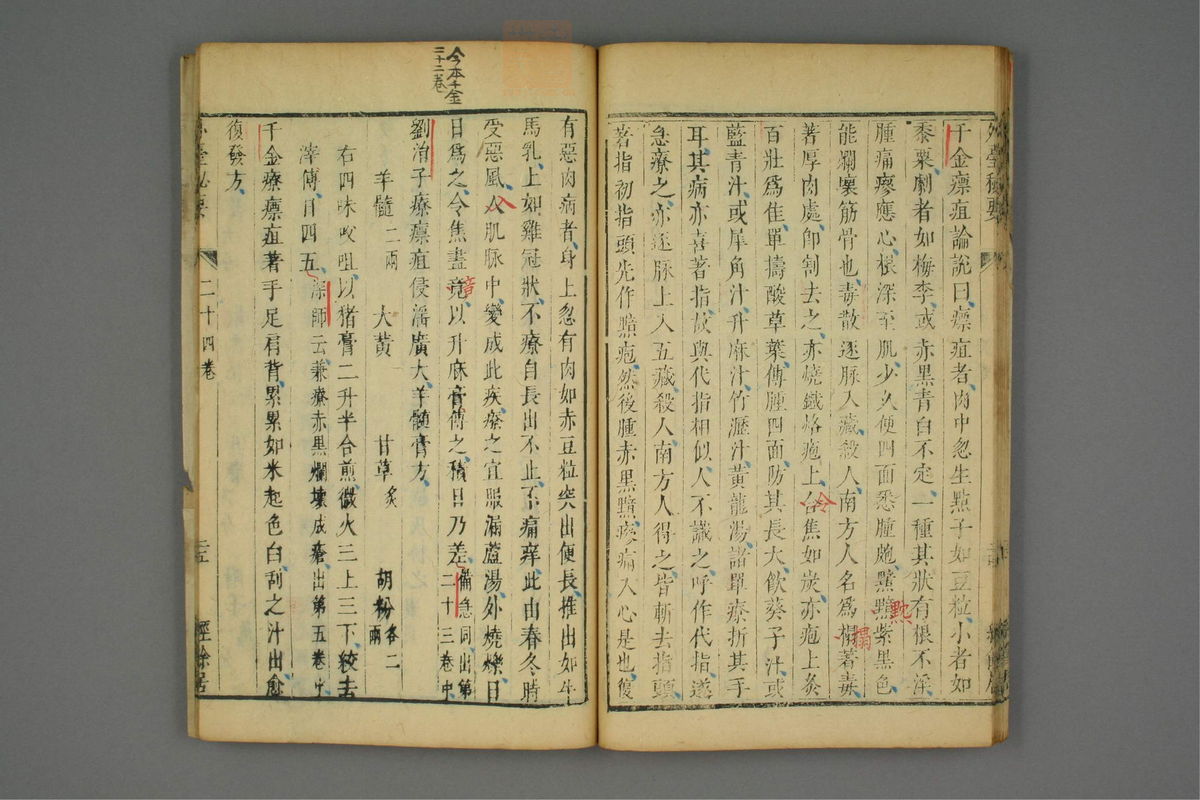 千金瘭疽論說曰瘭疽者肉中忽生點子如豆粒小者如
黍粟劇者如梅李或赤黑青白不定一種其狀有根不浮
腫痛疼應心根深至肌少久便四面悉腫皰黯黯紫黑色
能爛壞筋骨也毒散逐脉入藏殺人南方人名為搨著毒
著厚肉處即割去之亦燒鐵烙皰上令焦如炭亦皰上灸
百壯為佳單擣酸草葉傅腫四面防其長大飲葵子汁或
藍青汁或犀角汁升麻汁竹瀝汁黃龍湯諸單療折其手
耳其病亦喜著指故與代指相似人不識之呼作代指遂
急療之亦逐脉上入五藏殺人南方人得之皆斬去指頭
著指初指頭先作黯皰然後腫赤黑黯疼痛入心是也復
有惡肉病者身上忽有肉如赤豆粒突出便長推出如牛
馬乳上如雞冠狀不療自長出不止不痛痒此由春冬時
受惡風入肌脉中變成此疾療之宜服漏蘆湯外燒爍日
日為之令焦盡竟以升麻膏傅之積日乃差備急同出第二十三卷中
劉涓子療瘭疽侵淫廣大羊髓膏方
羊髓二兩 大黃 甘草炙 胡粉各二兩
右四味㕮咀以猪膏二升半合煎微火三上三下絞去
滓傅日四五深師云兼療赤黑爛壞成瘡出第五卷中
千金療瘭疽著手足肩背累累如米起色白刮之汁出愈
復發方
外臺秘要
二十四卷
經餘居
今本千金
二十二卷